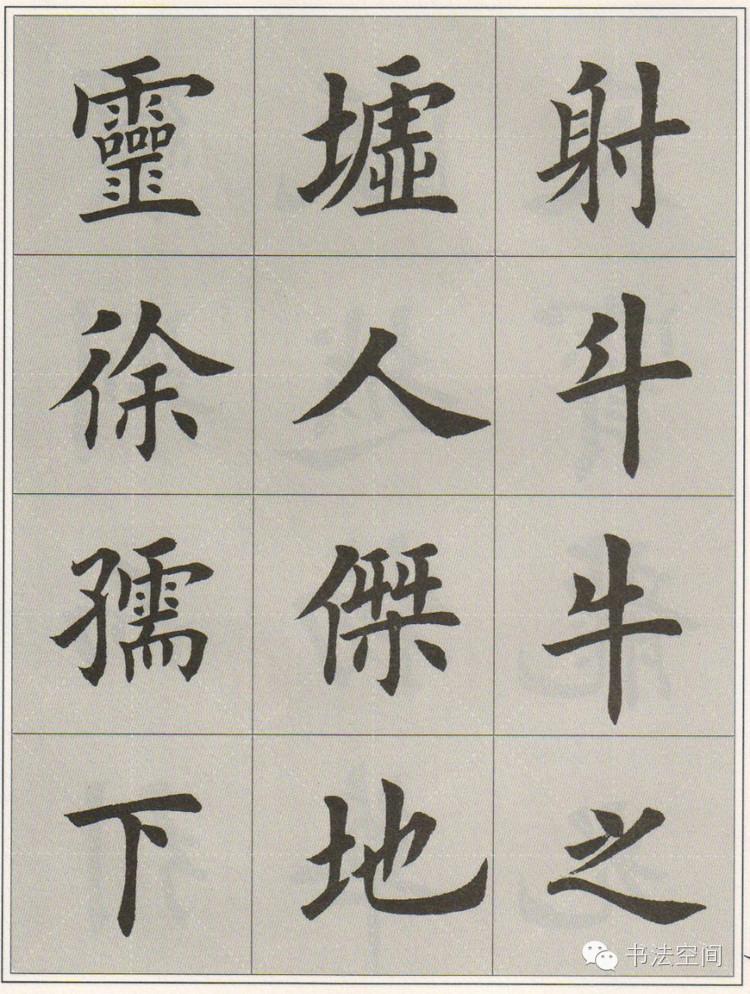 射斗牛之
墟人傑地
靈徐孺下
书法空间